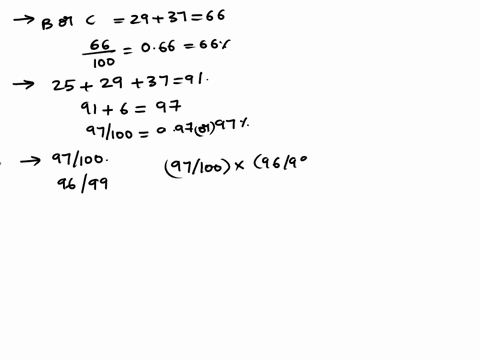 → B or C = 29 + 37 = 66
66/100 = 0.66 = 66%
→ 25 + 29 + 37 = 91.
91 + 6 = 97
97/100 = 0.97 (or) 97%
→ 97/100. (97/100) × (96/99
96/99